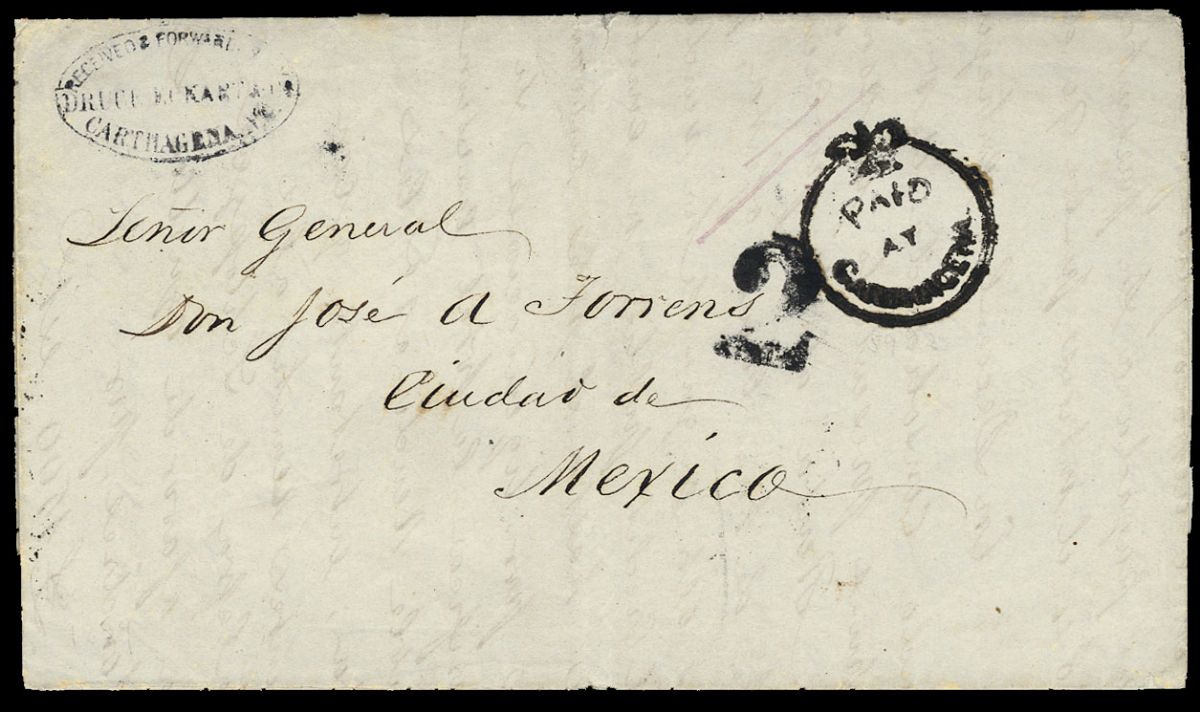 RECEIVED & FORWARDED
CARTHAGENA
PAID
AT
CARTHAGENA
2
Señor General
Don José A Torrens
Ciudad de
Mexico